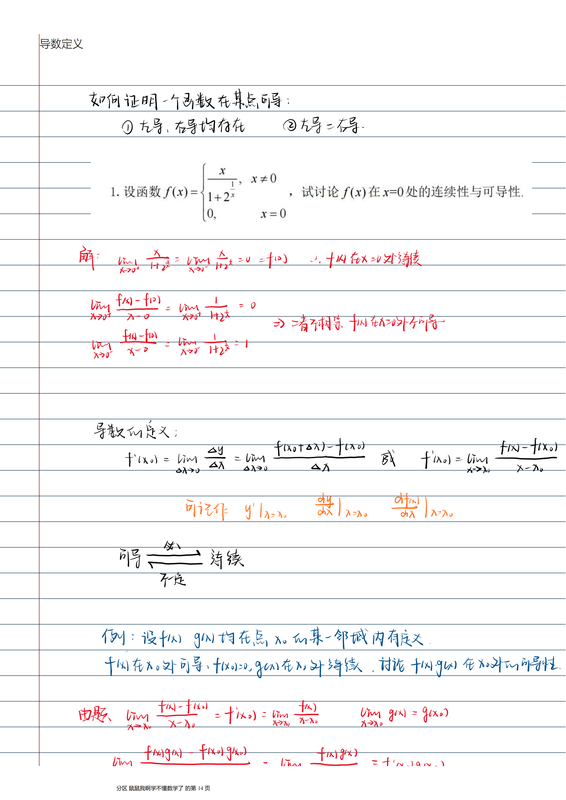 导数定义
如何证明一个函数在某点可导:
① 左导、右导均存在 ② 左导=右导.
1. 设函数 f(x) = { x/(1+2^(1/x)), x≠0 ; 0, x=0 , 试讨论 f(x) 在 x=0 处的连续性与可导性.
解: lim_{x→0⁺} x/(1+2^(1/x)) = lim_{x→0⁻} x/(1+2^(1/x)) = 0 = f(0) ∴ f(x) 在 x=0 处连续
lim_{x→0⁺} (f(x)-f(0))/(x-0) = lim_{x→0⁺} 1/(1+2^(1/x)) = 0
⇒ 二者不相等, f(x) 在 x=0 处不可导
lim_{x→0⁻} (f(x)-f(0))/(x-0) = lim_{x→0⁻} 1/(1+2^(1/x)) = 1
导数的定义:
f'(x₀) = lim_{Δx→0} Δy/Δx = lim_{Δx→0} (f(x₀+Δx)-f(x₀))/Δx 或 f'(x₀) = lim_{x→x₀} (f(x)-f(x₀))/(x-x₀)
可记作: y'|x=x₀ dy/dx|x=x₀ df(x)/dx|x=x₀
可导 ⇌ 连续
不定
例: 设 f(x) g(x) 均在点 x₀ 的某一邻域内有定义
f(x) 在 x₀ 处可导, f(x₀)=0, g(x) 在 x₀ 处连续. 讨论 f(x)g(x) 在 x₀ 处的可导性.
由题, lim_{x→x₀} (f(x)-f(x₀))/(x-x₀) = f'(x₀) = lim_{x→x₀} f(x)/(x-x₀) lim_{x→x₀} g(x) = g(x₀)
lim f(x)g(x) - f(x₀)g(x₀) = lim f(x)g(x) = f'(x₀)g(x₀)
分区 鼠鼠我啊学不懂数学了 的第 14 页